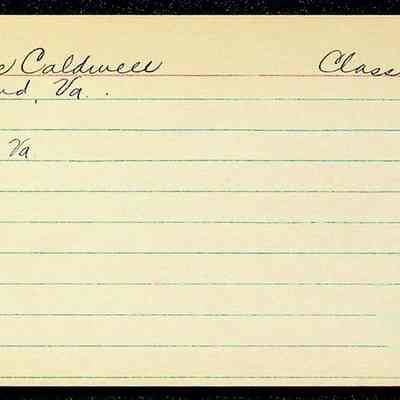 e Caldwell Class
nd, Va.
Va